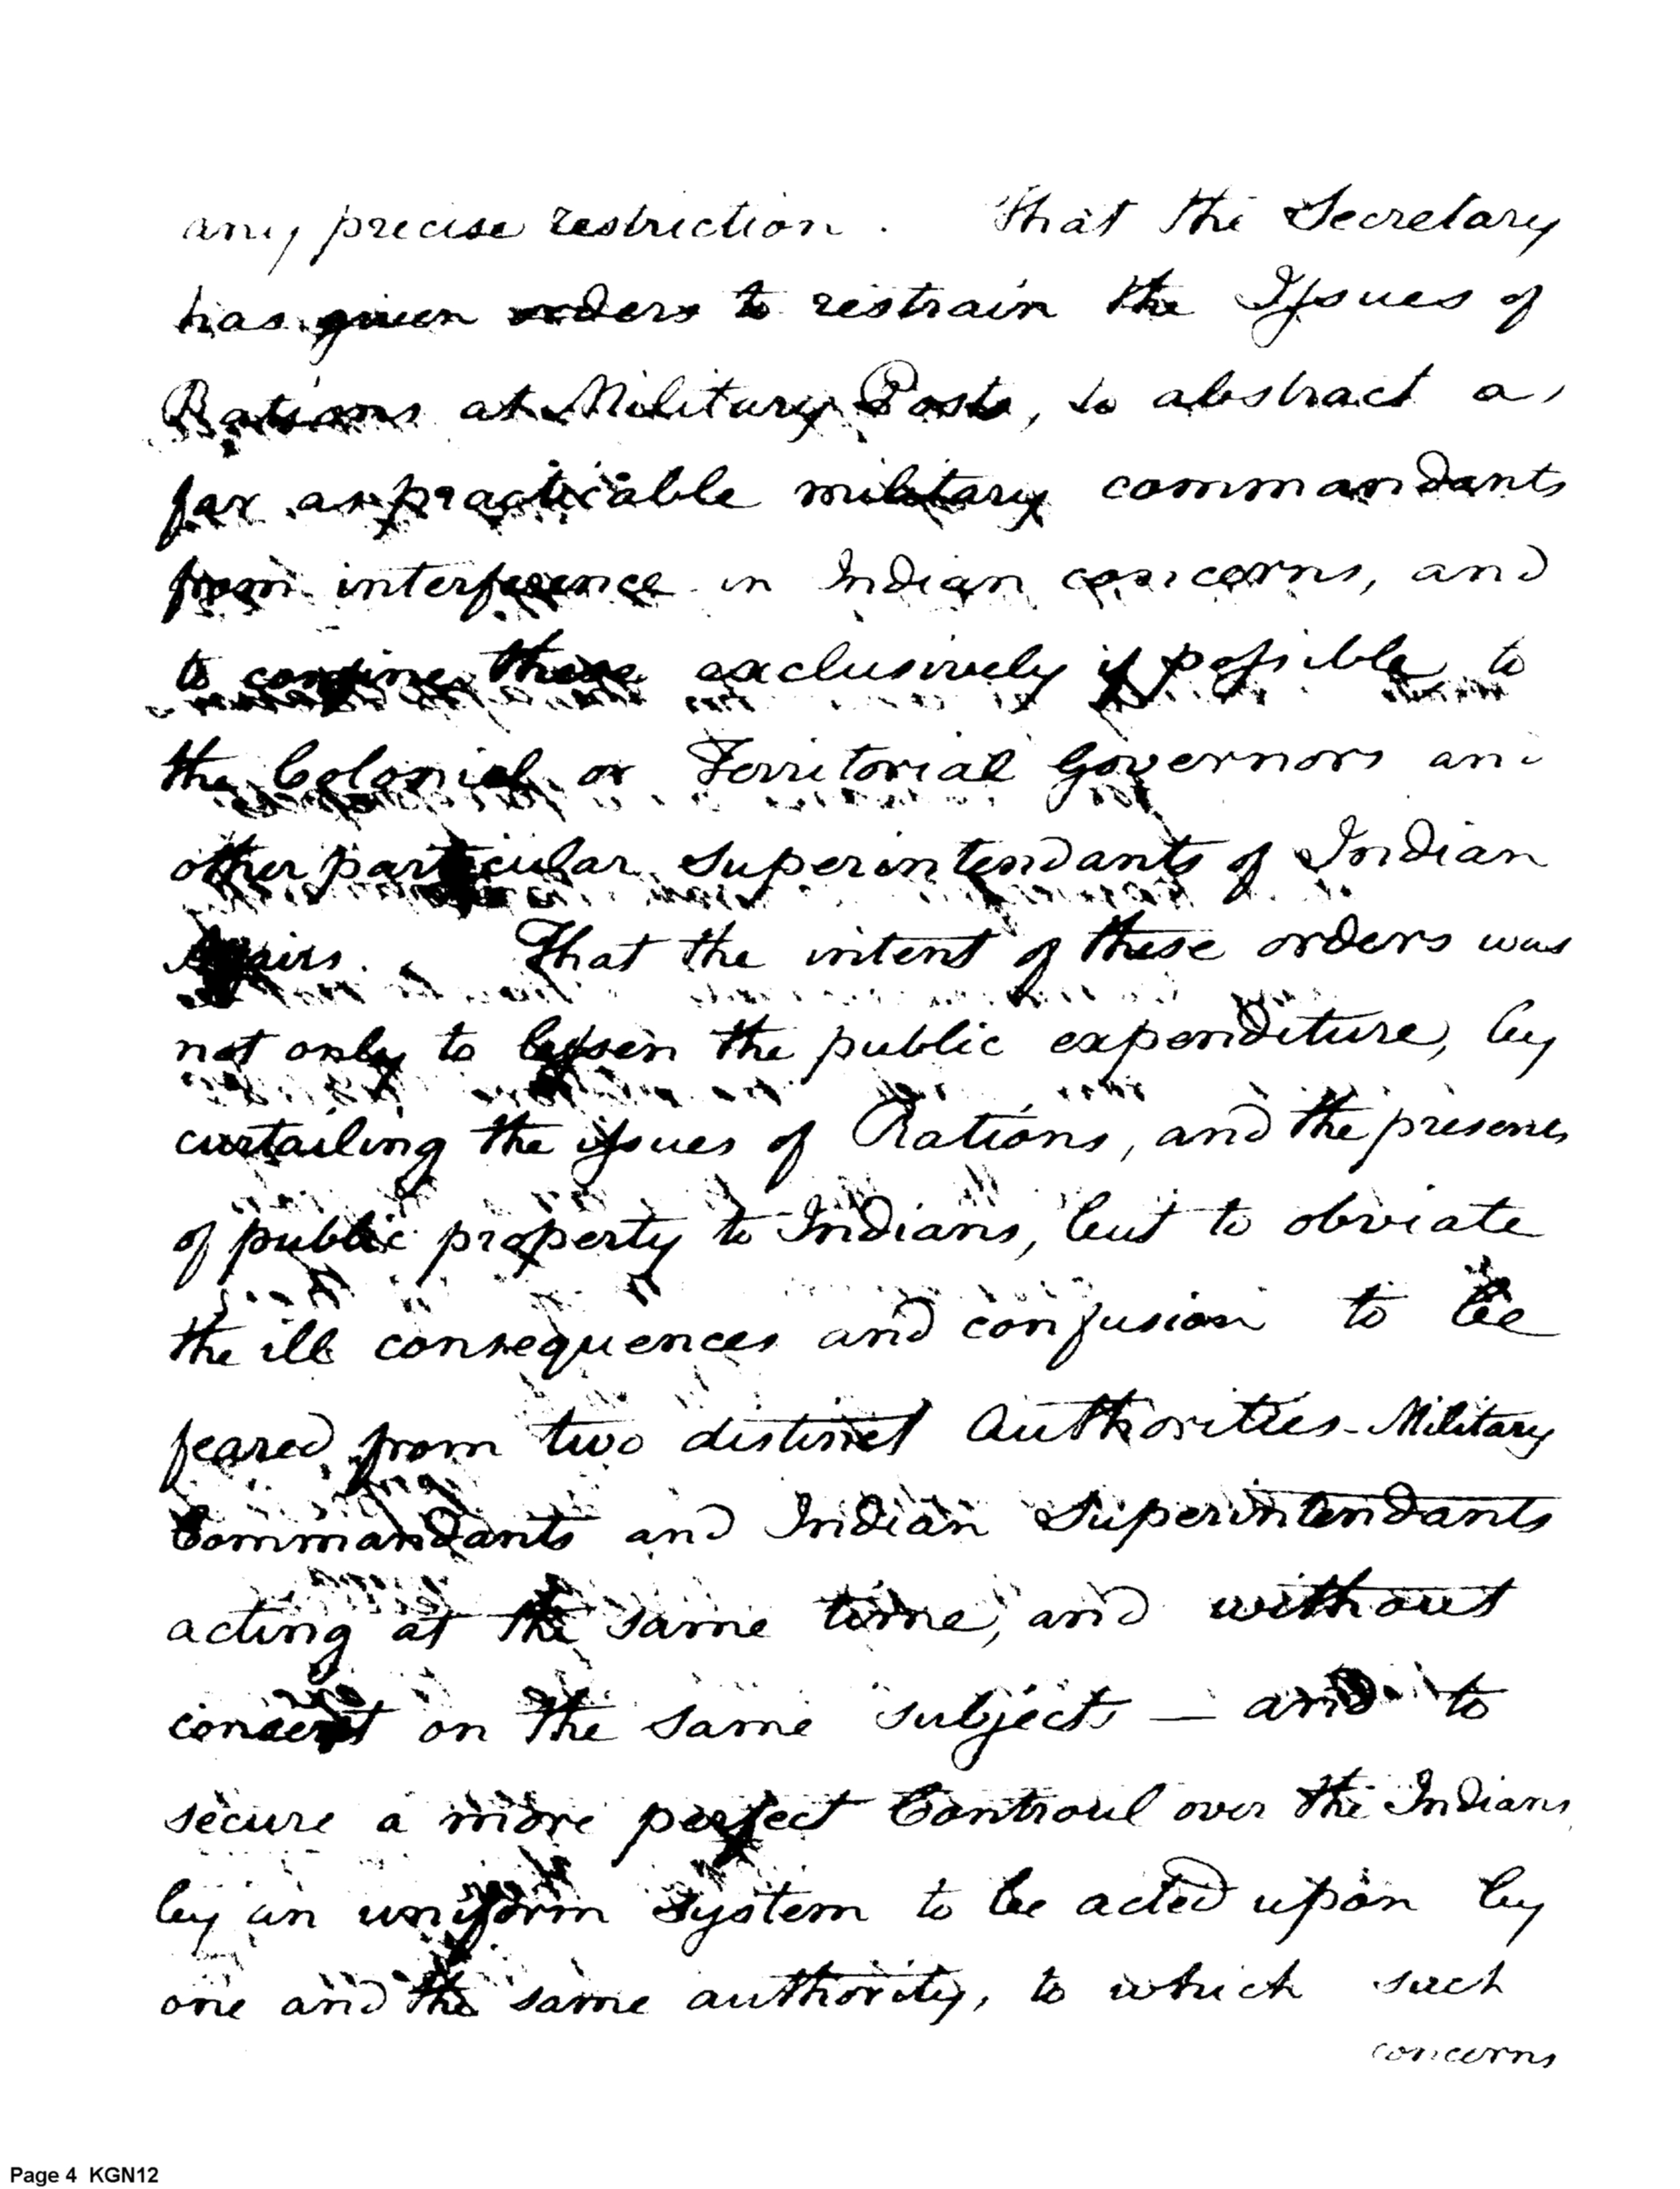 any precise restriction. That the Secretary
has given orders to restrain the Issues of
Rations at Military Posts, to abstract as
far as practicable military commandants
from interference in Indian concerns, and
to confine these exclusively if possible to
the Colonial or Territorial Governors and
other particular Superintendants of Indian
Affairs. That the intent of these orders was
not only to lessen the public expenditure, by
curtailing the issues of Rations, and the presents
of public property to Indians, but to obviate
the ill consequences and confusion to be
feared from two distinct Authorities - Military
Commandants and Indian Superintendants
acting at the same time, and without
concert on the same subjects — and to
secure a more perfect Controul over the Indians,
by an uniform System to be acted upon by
one and the same authority, to which such
concerns
Page 4 KGN12